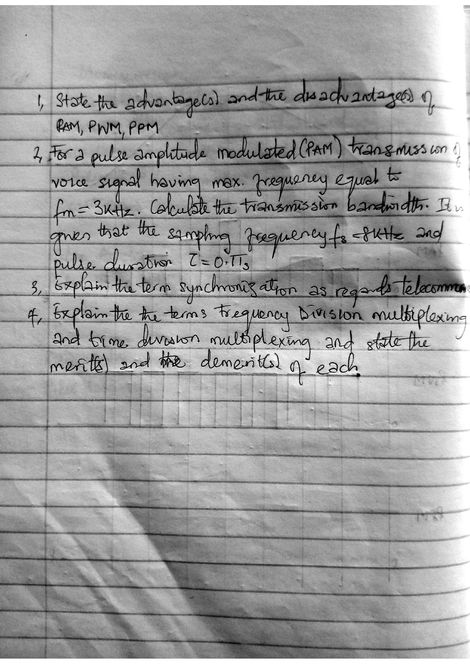 1, State the advantage(s) and the disadvantage(s) of
PAM, PWM, PPM
2, For a pulse amplitude modulated (PAM) transmission of
voice signal having max. frequency equal to
fm = 3KHz. Calculate the transmission bandwidth. It is
given that the sampling frequency fs = 8KHz and
pulse duration τ = 0.1Ts
3, Explain the term synchronization as regards telecomm
4, Explain the the terms Frequency Division multiplexing
and time division multiplexing and state the
merit(s) and the demerit(s) of each.